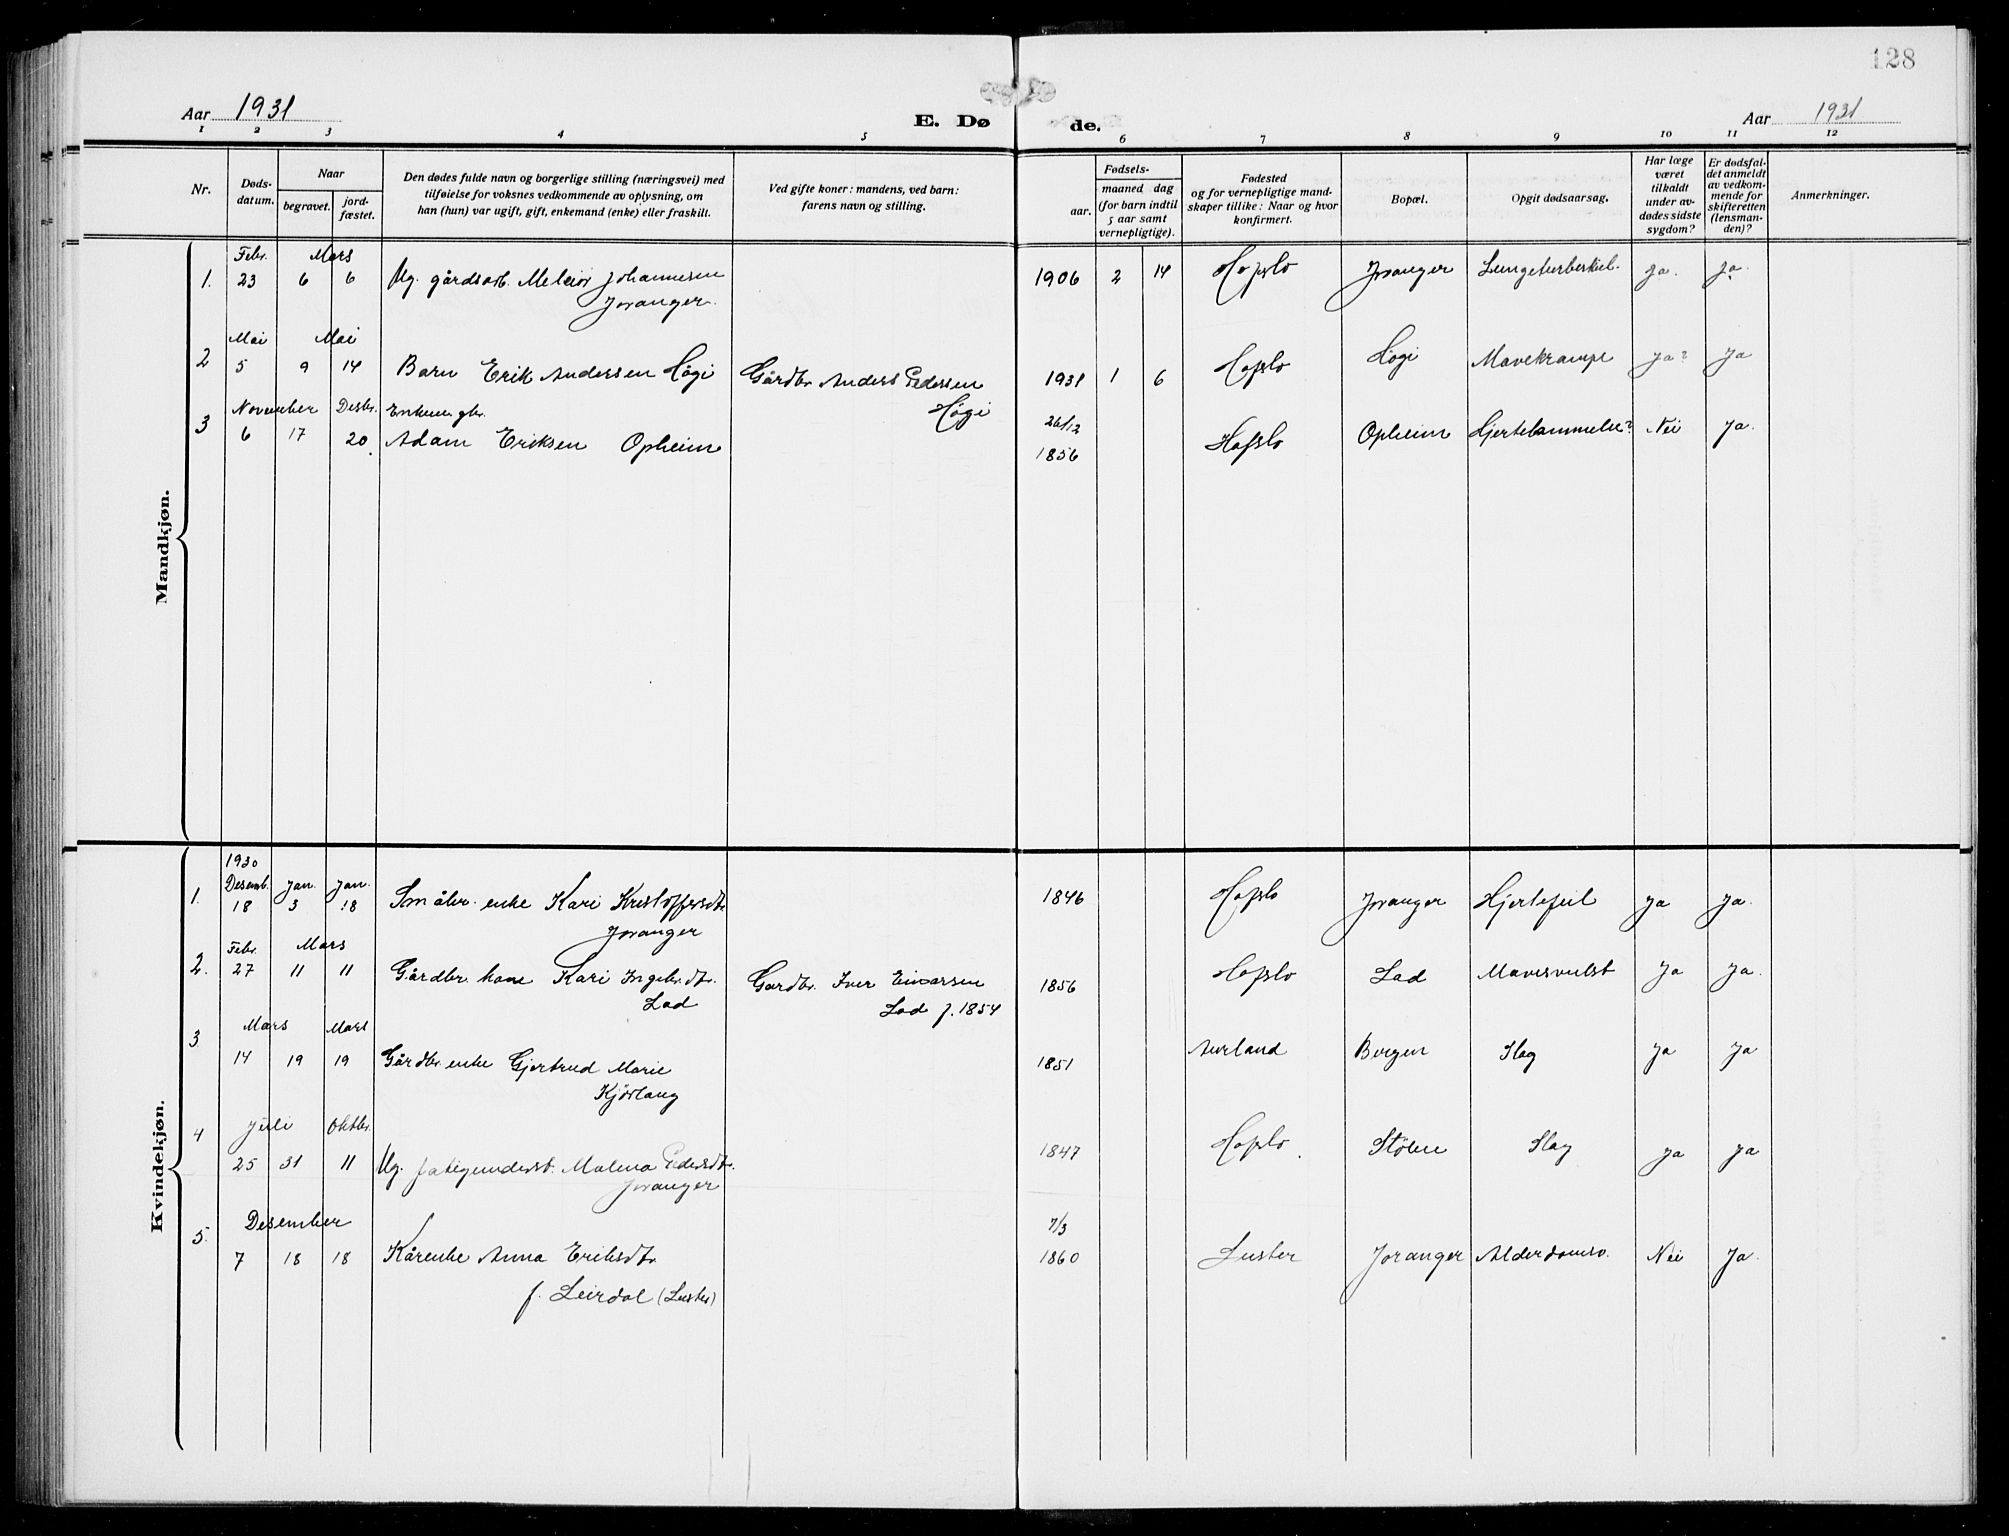 128
Aar 1931
E. Dø
de.
Aar 1931
1 2 3 4 5 6 7 8 9 10 11 12
Nr.
Døds-
datum.
Naar
begravet.
jord-
fæstet.
Den dødes fulde navn og borgerlige stilling (næringsvei) med
tilføielse for voksnes vedkommende av oplysning, om
han (hun) var ugift, gift, enkemand (enke) eller fraskilt.
Ved gifte koner: mandens, ved barn:
farens navn og stilling.
Fødsels-
aar.
maaned dag
(for barn indtil
5 aar samt
vernepligtige).
Fødested
og for vernepligtige mand-
skaper tillike: Naar og hvor
konfirmert.
Bopæl.
Opgit dødsaarsag.
Har læge
været
tilkaldt
under av-
dødes sidste
sygdom?
Er dødsfal-
det anmeldt
av vedkom-
mende for
skifteretten
(lensman-
den)?
Anmerkninger.
Mandkjøn.
Febr. Mars
1. 23 6 6 Ug. gårdsarb. Meleior Johannesen 1906 2 14 Hafslo Joranger Lungetuberkul. Ja. Ja.
Joranger.
Mai Mai
2 5 9 14 Barn Erik Anderssen Høgi Gårdbr Anders Pederssen 1931 1 6 Hafslo Høgi Mavekrampe Ja? Ja
Høgi
November Desbr. Enkem. gbr. 26/12
3 6 17 20. Adam Eriksen Opheim 1856 Hafslo Opheim Hjertelammelse? Nei Ja.
Kvindekjøn.
1930
Desemb. Jan. Jan.
1. 18 3 18 Småbr. enke Kari Kristoffersdtr 1846 Hafslo Joranger Hjertefeil Ja Ja.
Joranger
Febr. Mars
2. 27 11 11 Gårdbr. kone Kari Ingebr.dtr. Gardbr. Iver Einarsen 1856 Hafslo Lad Mavesvulst Ja Ja.
Lad Lad f. 1854
Mars Mars
3 14 19 19 Gårdbr. enke Gjertrud Marie 1851 Aurland Bergen Slag Ja Ja
Kjørlaug
Juli Oktbr.
4 25 31 11 Ug. fatigunderst. Malena Pedersdtr. 1847 Hafslo Stølen Slag Ja Ja
Joranger
Desember 7/3
5. 7 18 18 Kårenke Anna Eriksdtr 1860 Luster Joranger Alderdomsv. Nei Ja.
f. Leirdal (Luster)